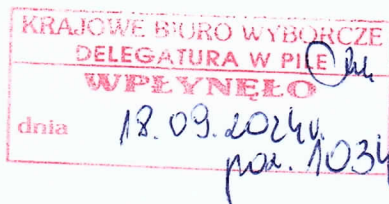 KRAJOWE BIURO WYBORCZE
DELEGATURA W PILE
WPŁYNĘŁO
dnia 18.09.2024r.
poz. 1034